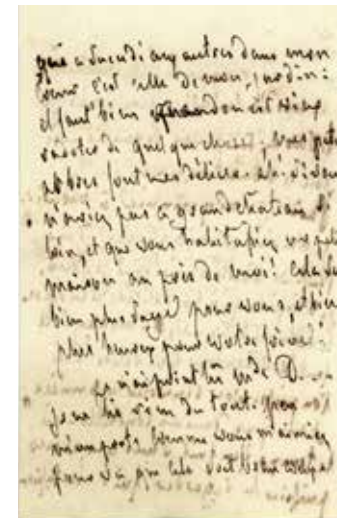 que a succédi aux autres dans mon
cœur c'est celle de mon jardin:
il faut bien quand on est vieux
radoter de quelque chose; mes petits
arbres font mes délices. ah! si vous
n'aviez pas ce grand chateau si
loin, et que vous habitassiez une petite
maison au près de moi! cela seroit
bien plus sage pour vous, et bien
plus heureux pour votre frère!
Je n'ai point lu Mde D.
je ne lis rien du tout. peu
m'importe comme vous m'aimiez
pourvu que cela soit